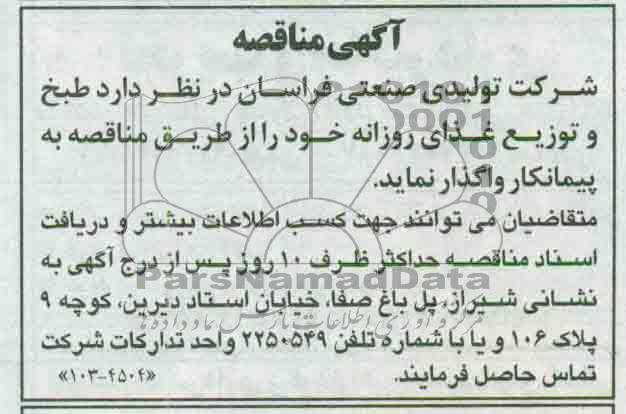 آگهی مناقصه
شرکت تولیدی صنعتی فراسان در نظر دارد طبخ
و توزیع غذای روزانه خود را از طریق مناقصه به
پیمانکار واگذار نماید.
متقاضیان می توانند جهت کسب اطلاعات بیشتر و دریافت
اسناد مناقصه حداکثر ظرف ۱۰ روز پس از درج آگهی به
ParsNamadData
نشانی شیراز، پل باغ صفا، خیابان استاد دیرین، کوچه ۹
پلاک ۱۰۶ و یا با شماره تلفن ۲۲۵۰۵۴۹ واحد تدارکات شرکت
تماس حاصل فرمایند.
«۱۰۳-۴۵۰۴»